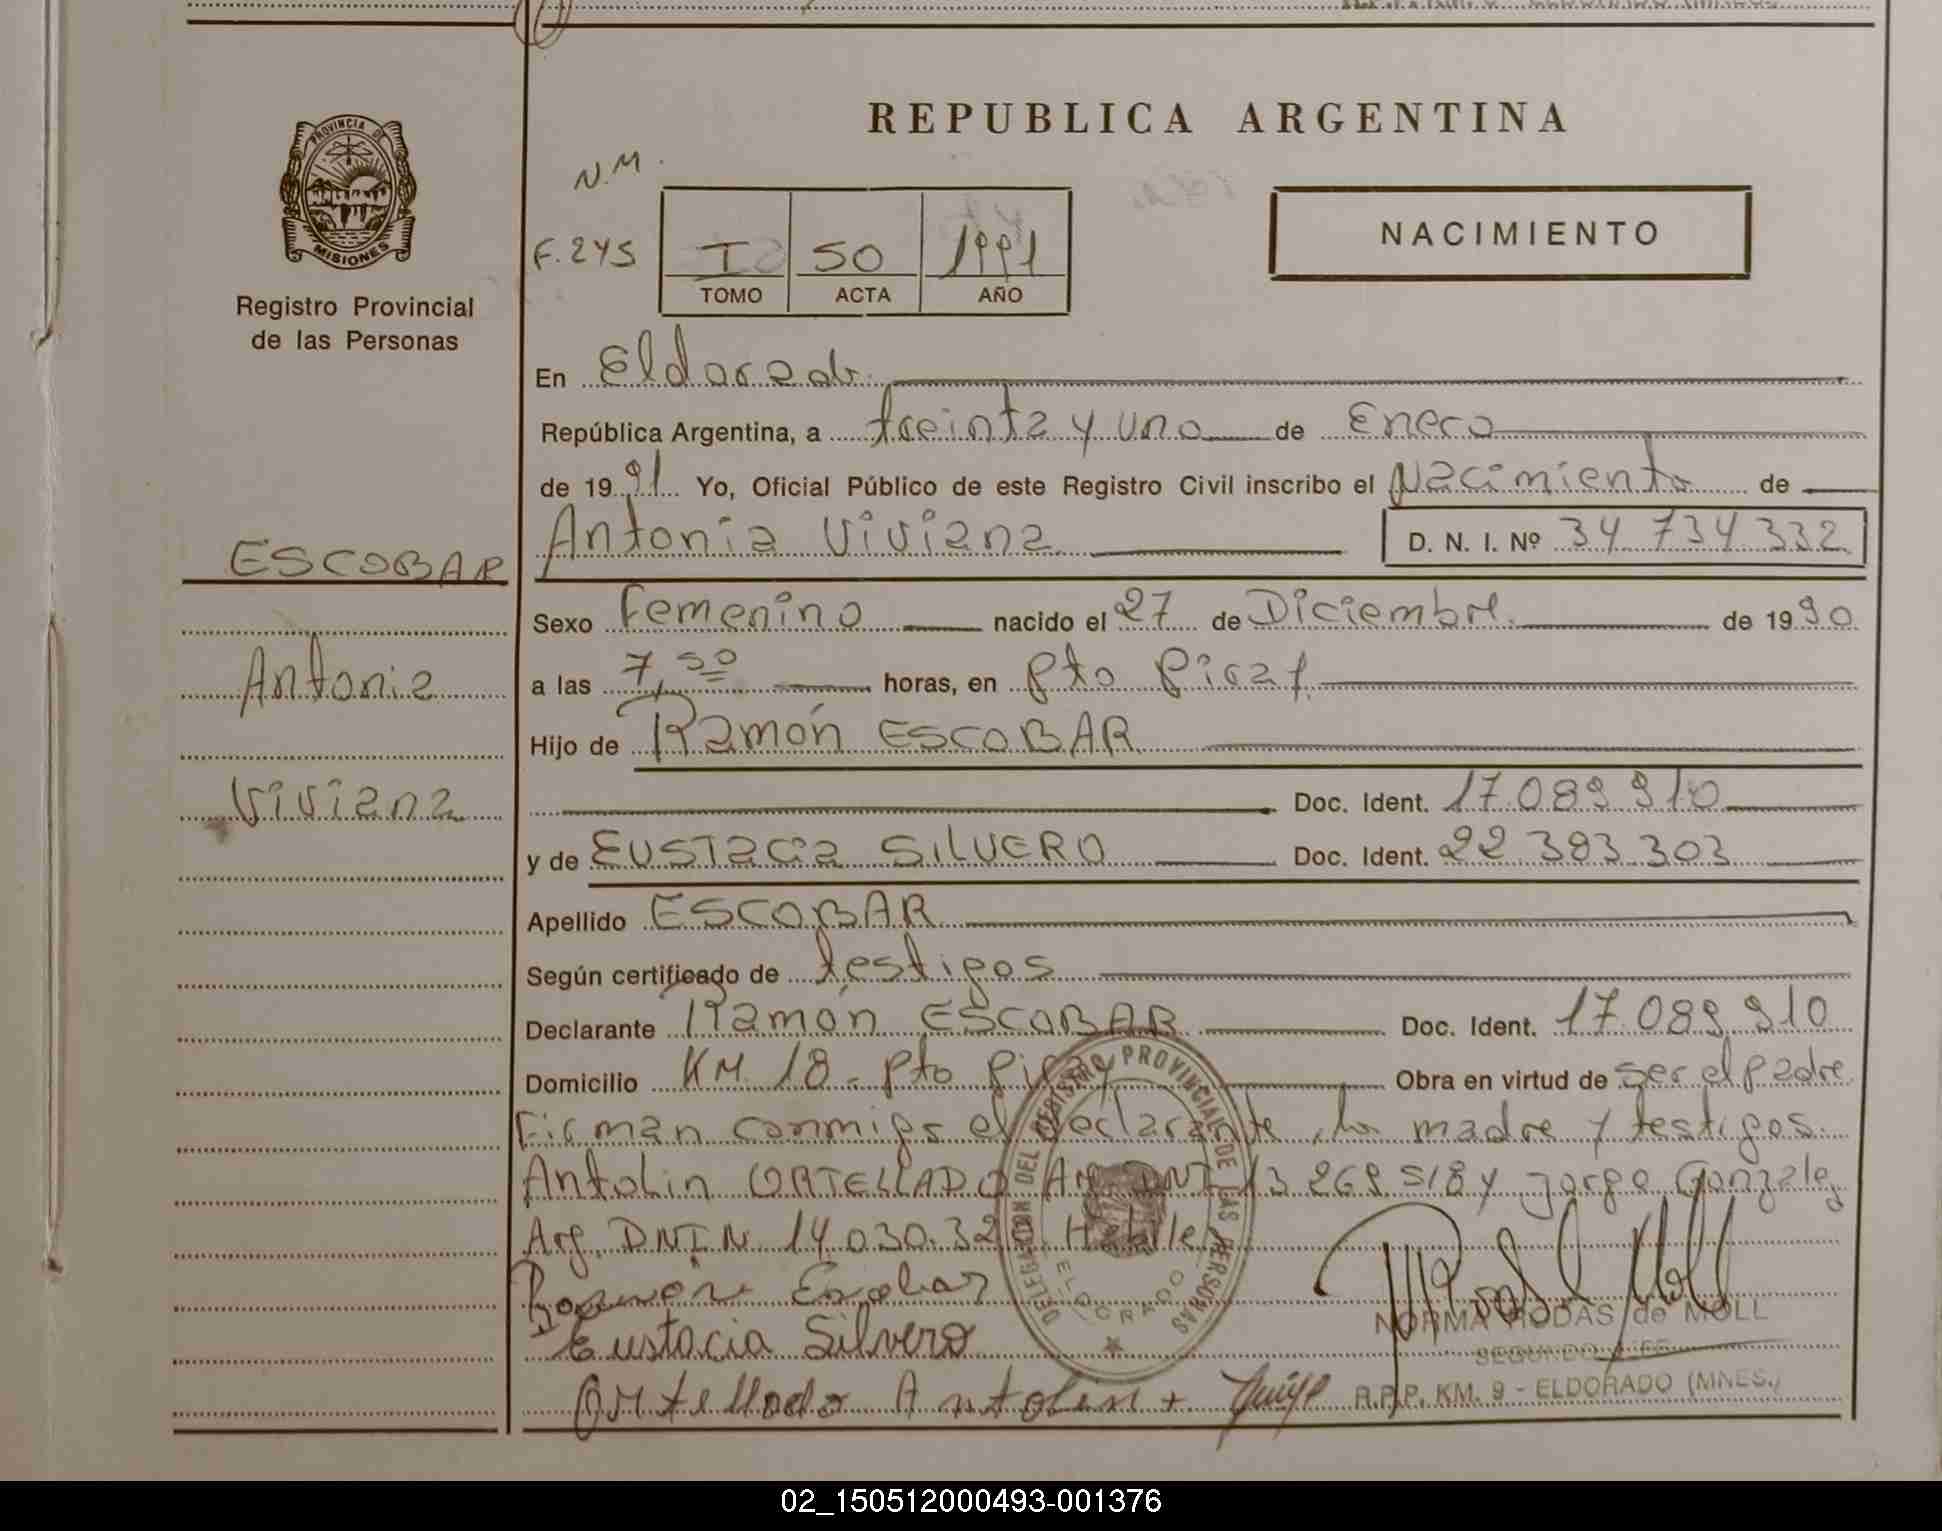 REPUBLICA ARGENTINA
PROVINCIA DE
MISIONES
Registro Provincial
de las Personas
N.M.
F. 245
I 50 1991
TOMO ACTA AÑO
NACIMIENTO
En Eldorado
República Argentina, a treinta y uno de Enero
de 1991 Yo, Oficial Público de este Registro Civil inscribo el Nacimiento de
Antonia Viviana D. N. I. Nº 34 734 332
ESCOBAR
Antonia
Viviana
Sexo Femenino nacido el 27 de Diciembre de 1990
a las 7,30 horas, en Pto Piray
Hijo de Ramón ESCOBAR
Doc. Ident. 17.089 910
y de EUSTACIA SILVERO Doc. Ident. 22 383 303
Apellido ESCOBAR
Según certificado de testigos
Declarante Ramón ESCOBAR Doc. Ident. 17.089 910
Domicilio KM. 18 - Pto Piray Obra en virtud de ser el padre
Firman conmigo el declarante, la madre y testigos
Antolin ORTELLADO Arg DNI 13 269 518 y Jorge Gonzalez
Arg. DNI N 14.030.32
Ramon Escobar
Eustacia Silvero
Ortellado Antolin
DELEGACION DEL REGISTRO PROVINCIAL DE LAS PERSONAS
ELDORADO
NORMA RODAS de MOLL
SEGUNDO JEFE
R.P.P. KM. 9 - ELDORADO (MNES.)
02_150512000493-001376